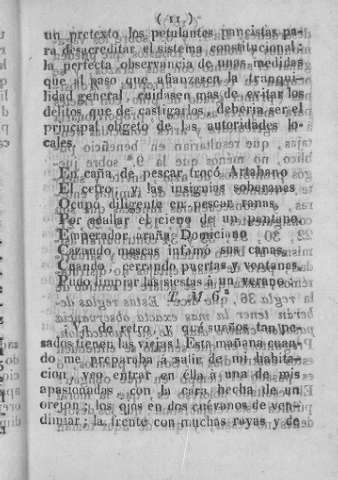 ( 11 )
un pretexto los petulantes pancistas pa-
ra desacreditar el sistema constitucional:
la perfecta observancia de unas medidas
que al paso que afianzasen la tranqui-
lidad general, cuidasen mas de evitar los
delitos que de castigarlos, debería ser el
principal objeto de las autoridades lo-
cales.
En caña de pescar trocó Artabano
El cetro, y las insignias soberanas
Ocupó diligente en pescar ranas,
Por adular el cieno de un pantano.
Emperador araña Domiciano
Cazando moscas infamó sus canas,
Cuando, cerrando puertas y ventanas,
Pudo limpiar las siestas á un verano.
T. M. 6.
¡Va de retro, y qué sueños tan pe-
sados tienen las viejas! Esta mañana cuan-
do me preparaba á salir de mi habita-
cion, veo entrar en ella á una de mis
apasionadas, con la cara hecha de un
orejon; los ojos en dos cuévanos de ven-
dimiar; la frente con muchas rayas y de